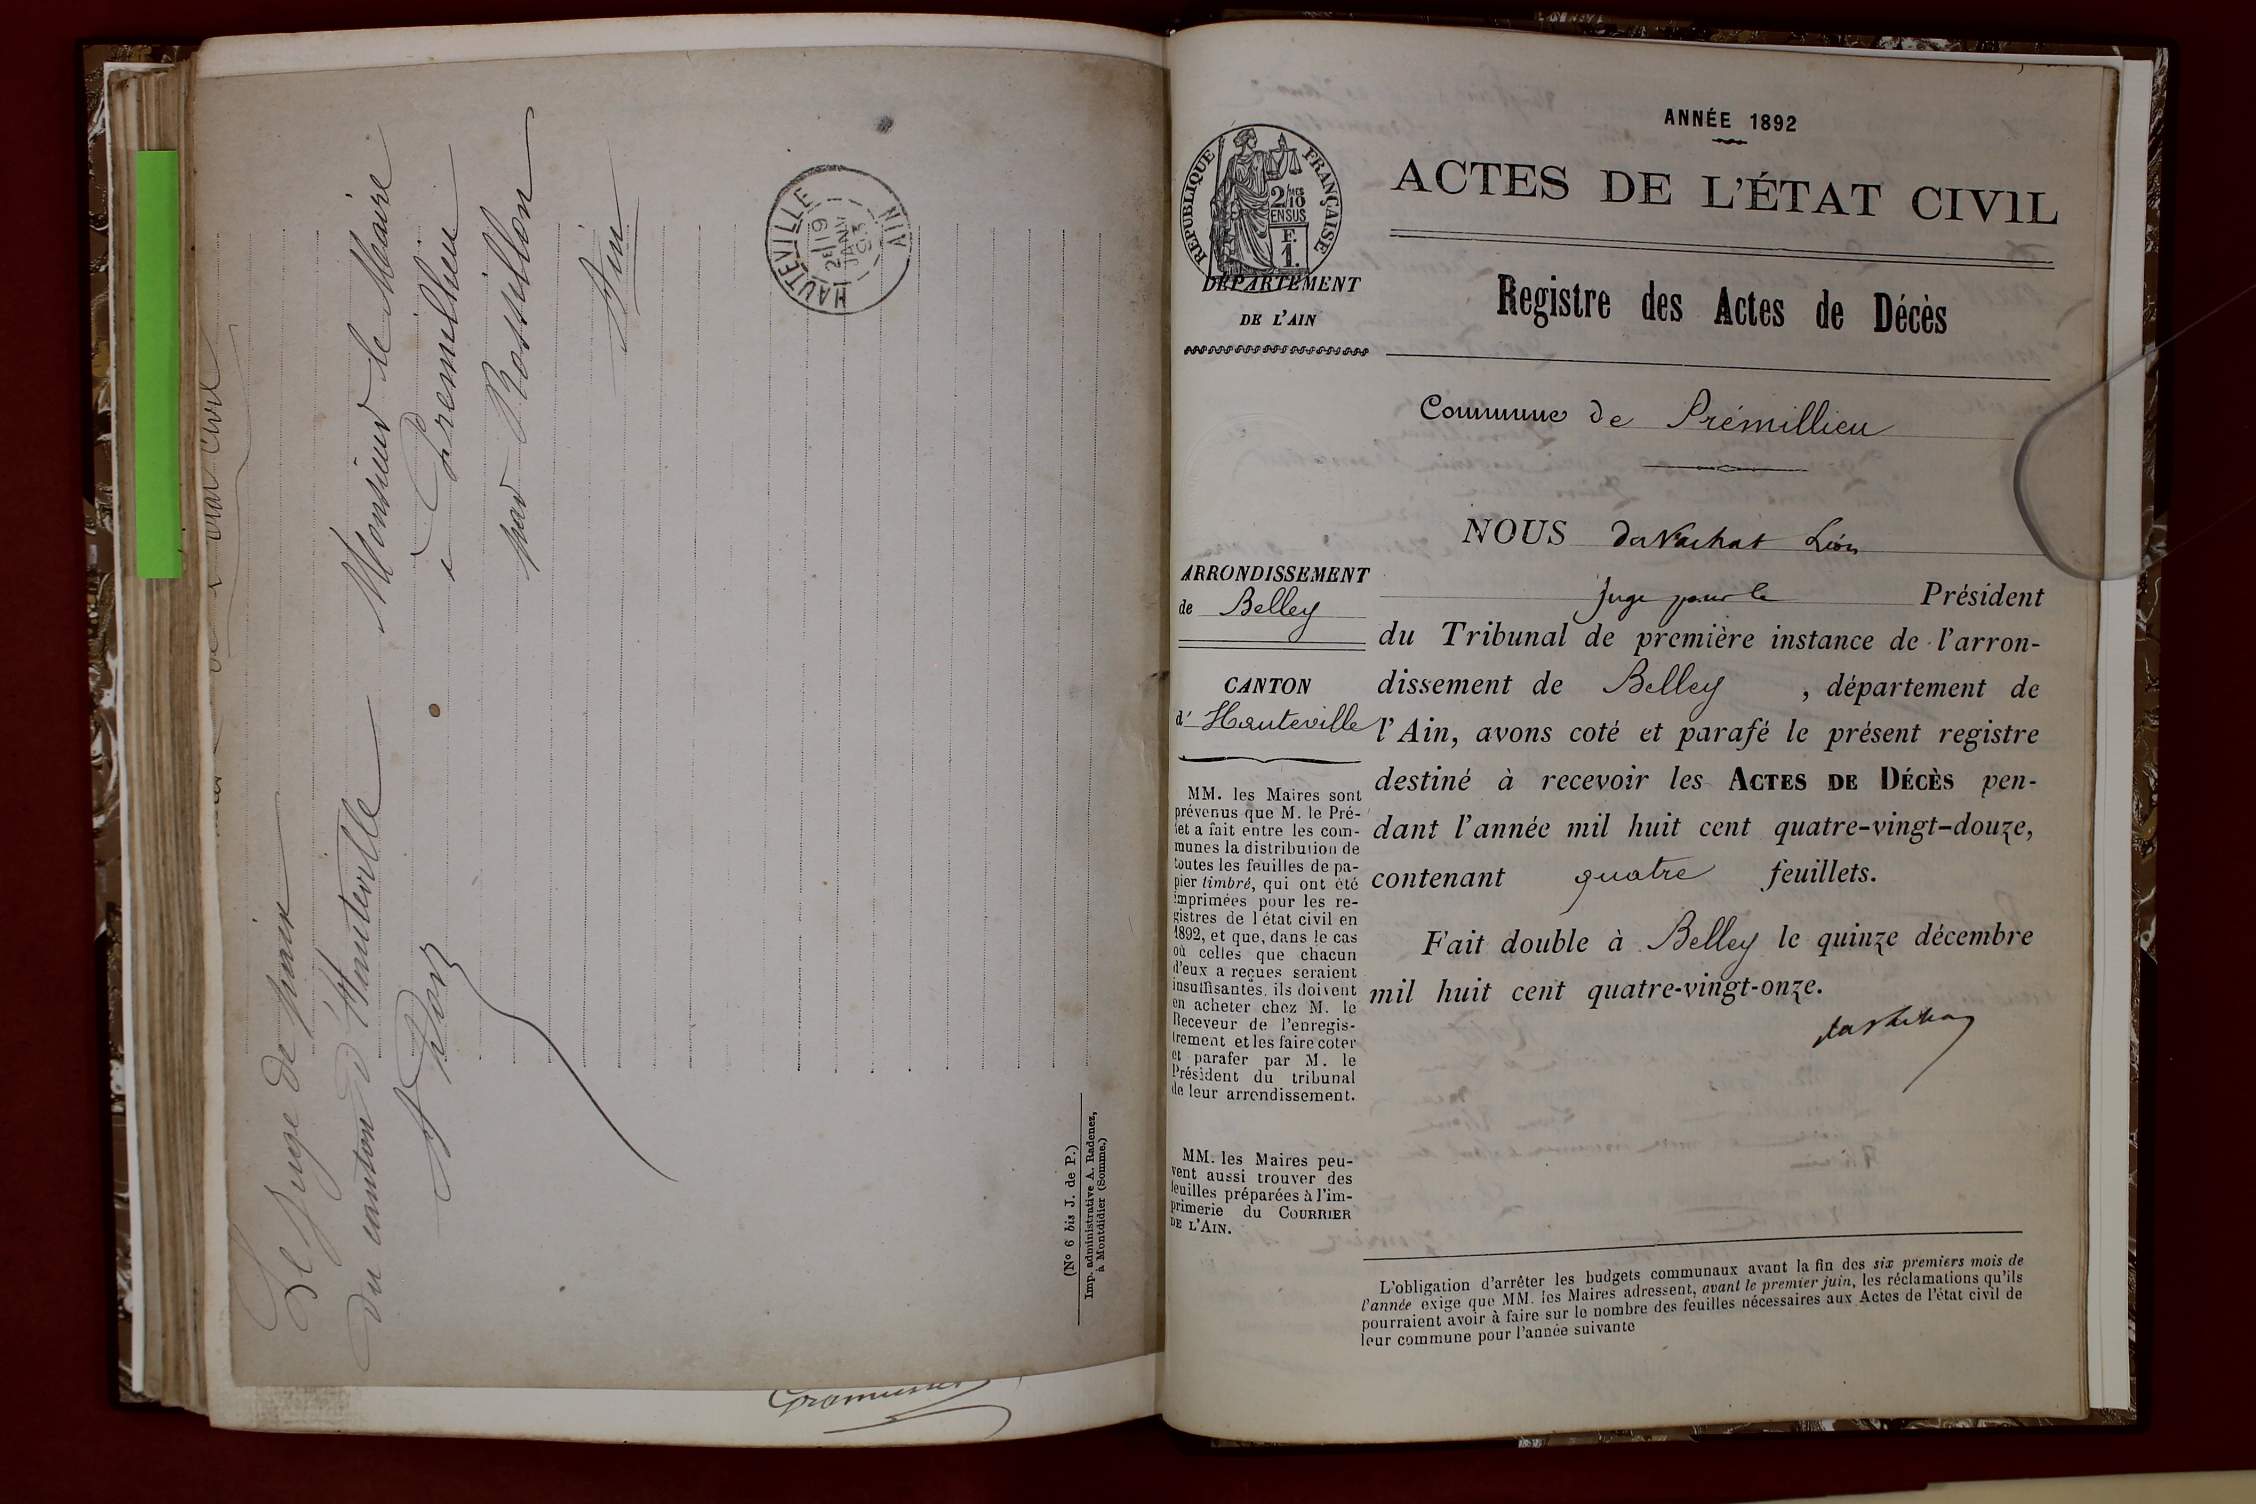 Le Juge de paix
du canton d'Hauteville
Monsieur le Maire
à Premillieu
par Rossillon
Ain
HAUTEVILLE
AIN
2E 19
JANV
93
(N° 6 bis J. de P.)
Imp. administrative A. Radenez,
à Montdidier (Somme.)
ANNÉE 1892
RÉPUBLIQUE FRANÇAISE
2/10
EN SUS
F.
1.
ACTES DE L'ÉTAT CIVIL
DÉPARTEMENT
DE L'AIN
Registre des Actes de Décès
Commune de Prémillieu
ARRONDISSEMENT
de Belley
CANTON
d' Hauteville
MM. les Maires sont
prévenus que M. le Pré-
fet a fait entre les com-
munes la distribution de
toutes les feuilles de pa-
pier timbré, qui ont été
imprimées pour les re-
gistres de l'état civil en
1892, et que, dans le cas
où celles que chacun
d'eux a reçues seraient
insuffisantes, ils doivent
en acheter chez M. le
Receveur de l'enregis-
trement et les faire coter
et parafer par M. le
Président du tribunal
de leur arrondissement.
MM. les Maires peu-
vent aussi trouver des
feuilles préparées à l'im-
primerie du COURRIER
DE L'AIN.
NOUS Léon
Juge pour le Président
du Tribunal de première instance de l'arron-
dissement de Belley , département de
l'Ain, avons coté et parafé le présent registre
destiné à recevoir les ACTES DE DÉCÈS pen-
dant l'année mil huit cent quatre-vingt-douze,
contenant quatre feuillets.
Fait double à Belley le quinze décembre
mil huit cent quatre-vingt-onze.
L'obligation d'arrêter les budgets communaux avant la fin des six premiers mois de
l'année exige que MM. les Maires adressent, avant le premier juin, les réclamations qu'ils
pourraient avoir à faire sur le nombre des feuilles nécessaires aux Actes de l'état civil de
leur commune pour l'année suivante